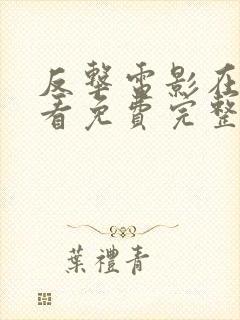 反擊電影在
看免費完整
葉禮青